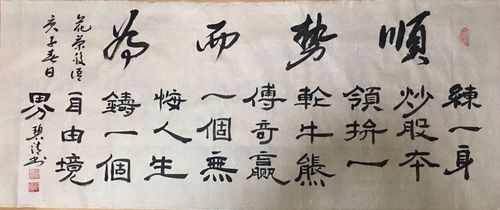 順势而為
花荣股语
庚子春日
練一身
炒股本
領拚一
輪牛熊
傳奇贏
一個無
悔人生
鑄一個
自由境
界